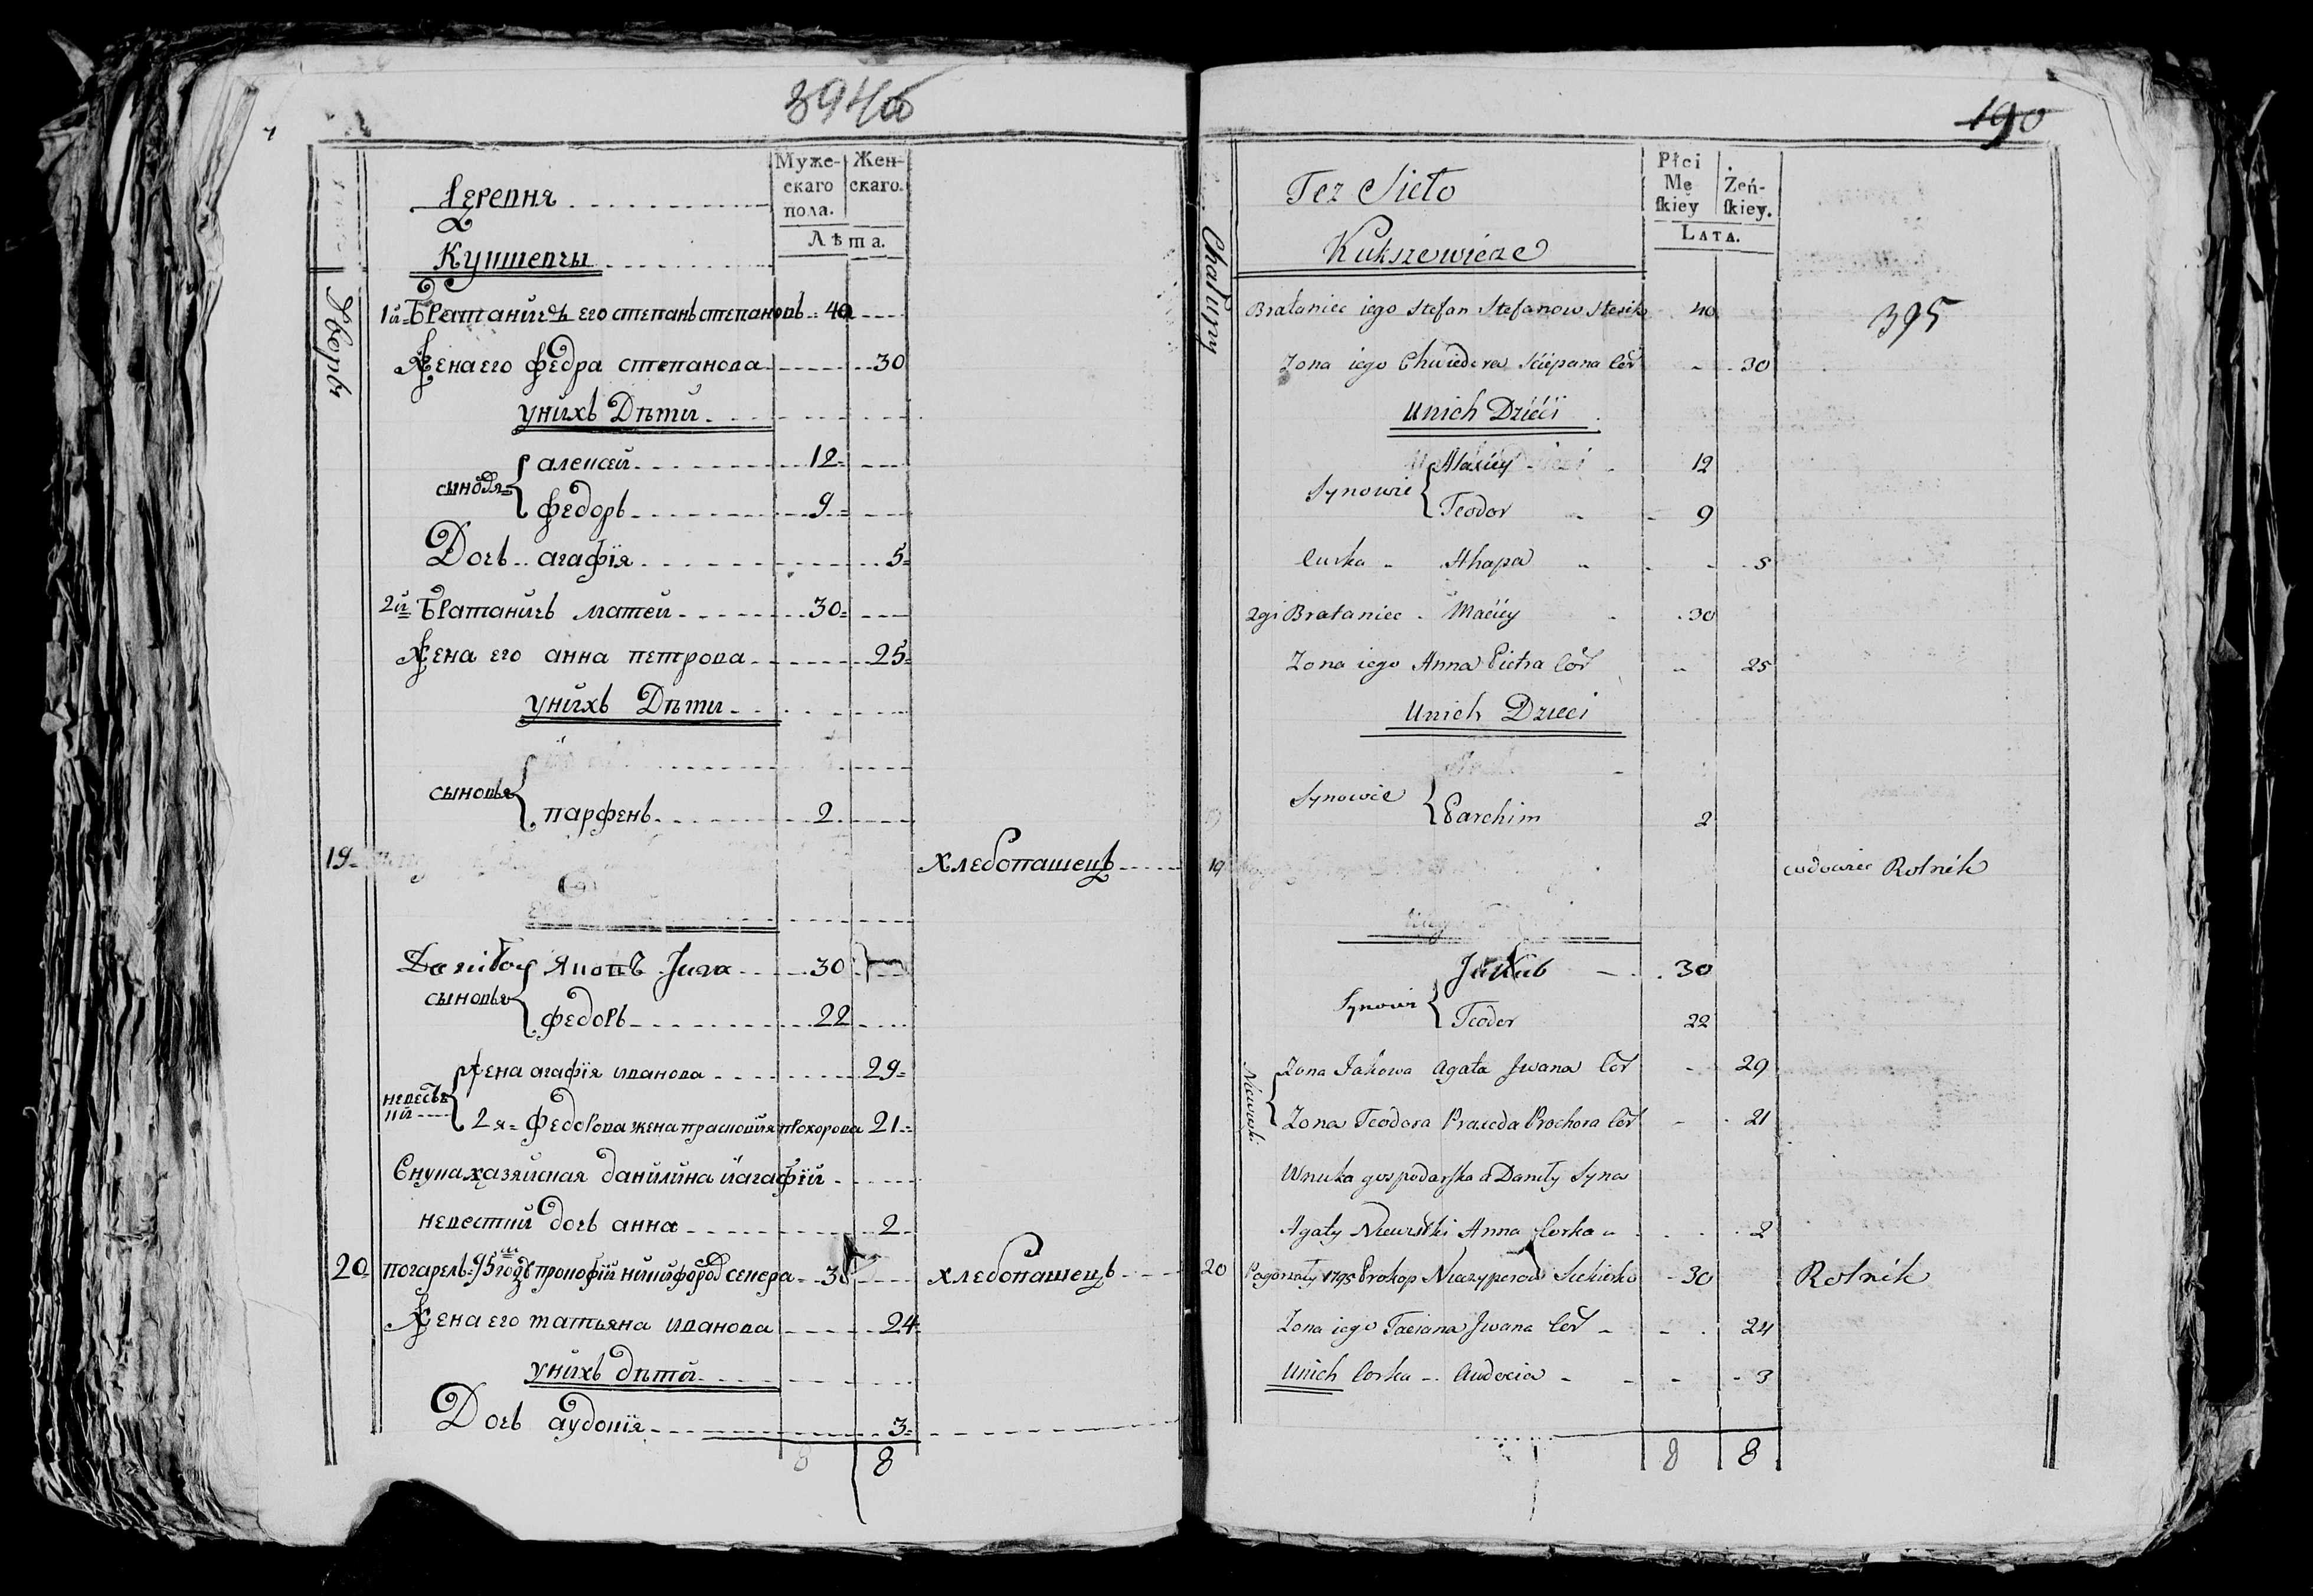 394об
Деревня
Кукшевичы
Муже-
скаго
пола.
Жен-
скаго.
Лѣта.
Дворы
1й Братаничъ его степанъ степановъ 40
Жена его федра степанова 30
унихъ Дѣти
сыновя
алексей 12
федоръ 9
Дочь агафїя 5
2й Братаничъ матей 30
Жена его анна петрова 25
унихъ Дѣти
сыновя
парфенъ 2
19 хлебопашецъ
Якопъ 30
сыновя
федоръ 22
невест
ки
Жена агафїя иванова 29
2я Федорова жена прасковия прохорова 21
Внука хазяйская данилина й агафїи
невестки дочь анна 2
20 погорелъ 95 годъ прокофїй никифоров секера 30 хлебопашецъ
Жена его татьяна иванова 24
унихъ дѣти
Дочь аудокия 3
8 8
190
Tez Sieło
Kukszewicze
Płci
Mę
ſkiey
Żeń-
ſkiey.
LATA.
Chałupy
395
Brataniec iego Stefan Stefanow 40
Zona iego Chwiedora Sciepana Cór 30
Unich Dzieći
Synowie
Alexiey 12
Teodor 9
Curka Ahapa 5
2gi Brataniec Maciey 30
Zona iego Anna Pietra Cór 25
Unich Dzieci
Synowie
Parchim 2
19 wdowiec Rolnik
Jakub 30
Synowi
Teodor 22
Niewistki
Zona Jakowa Agata Jwana Cór 29
Zona Teodora Praxeda Prochora Cór 21
Wnuka gospodarska a Daniły Syna
Agaty Niewistki Anna Corka 2
20 Pogorzały 1795 Prokop Niczyperow Siekierko 30 Rolnik
Zona iego Taciana Jwana Cór 24
Unich Corka Audocia 3
8 8